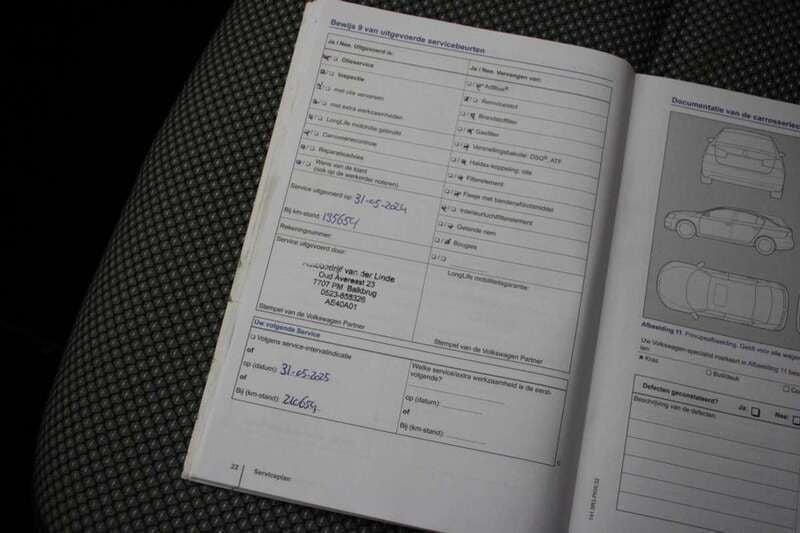 Bewijs 9 van uitgevoerde servicebeurten
Ja / Nee. Uitgevoerd is:
Olieservice
Inspectie
met olie verversen
met extra werkzaamheden
LongLife motorolie gebruikt
Carrosseriecontrole
Reparatieadvies
Wens van de klant
(ook op de werkorder noteren)
Service uitgevoerd op: 31-05-2024
Bij km-stand: 195654
Rekeningnummer:
Service uitgevoerd door:
van der Linde
Oud Avereest 23
7707 PM Balkbrug
0523-858326
AE40A01
Stempel van de Volkswagen Partner
Ja / Nee. Vervangen van:
AdBlue®
Remvloeistof
Brandstoffilter
Gasfilter
Versnellingsbakolie: DSG®, ATF
Haldex-koppeling: olie
Filterelement
Flesje met bandenafdichtmiddel
Interieurluchtfilterelement
Getande riem
Bougies
LongLife mobiliteitsgarantie:
Stempel van de Volkswagen Partner
Uw volgende Service
Volgens service-intervalindicatie
of
op (datum): 31-05-2025
of
Bij (km-stand): 210654
Welke service/extra werkzaamheid is de eerst-
volgende?
op (datum):
of
Bij (km-stand):
22 Serviceplan
Documentatie van de carrosserie
Afbeelding 11 Principeafbeelding. Geldt voor alle wage
Uw Volkswagen-specialist markeert in Afbeelding 11 be
len:
Kras
Buil/deuk
Defecten geconstateerd? Ja: Nee:
Beschrijving van de defecten: